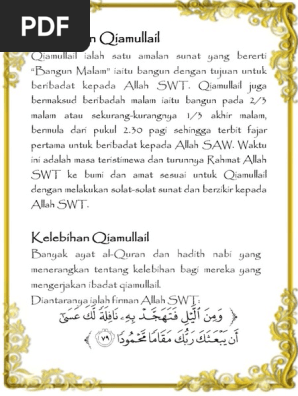 PDF
n Qiamullail
Qiamullail ialah satu amalan sunat yang bererti
"Bangun Malam" iaitu bangun dengan tujuan untuk
beribadat kepada Allah SWT. Qiamullail juga
bermaksud beribadah malam iaitu bangun pada 2/3
malam atau sekurang-kurangnya 1/3 akhir malam,
bermula dari pukul 2.30 pagi sehingga terbit fajar
pertama untuk beribadat kepada Allah SAW. Waktu
ini adalah masa teristimewa dan turunnya Rahmat Allah
SWT ke bumi dan amat sesuai untuk Qiamullail
dengan melakukan solat-solat sunat dan berzikir kepada
Allah SWT.
Kelebihan Qiamullail
Banyak ayat al-Quran dan hadith nabi yang
menerangkan tentang kelebihan bagi mereka yang
mengerjakan ibadat qiamullail.
Diantaranya ialah firman Allah SWT:
﴿ وَمِنَ ٱلَّيْلِ فَتَهَجَّدْ بِهِۦ نَافِلَةً لَّكَ عَسَىٰٓ
أَن يَبْعَثَكَ رَبُّكَ مَقَامًا مَّحْمُودًا ﴿٧٩﴾ ﴾